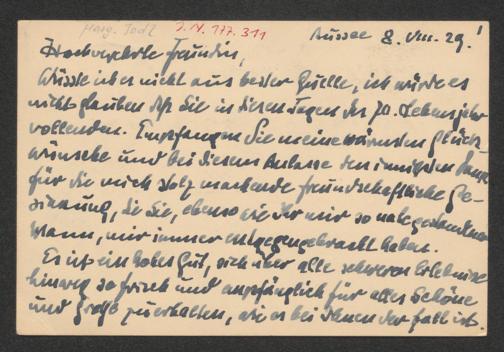 Marg. Jodl J.N. 177.311
Aussee 8. VIII. 29.
Hochverehrte Freundin,
Wüsste ich es nicht aus bester Quelle, ich würde es
nicht glauben, dass Sie in diesen Tagen das 70. Lebensjahr
vollenden. Empfangen Sie meine wärmsten Glück-
wünsche und bei diesem Anlasse den innigsten Dank
für die mich stolz machende freundschaftliche Ge-
sinnung, die Sie, ebenso wie Ihr mir so nahe gestandener
Mann, mir immer entgegengebracht haben.
Es ist ein hohes Gut, sich über alle schweren Erlebnisse
hinweg so frisch und empfänglich für alles Schöne
und Große zu erhalten, wie es bei Ihnen der Fall ist.